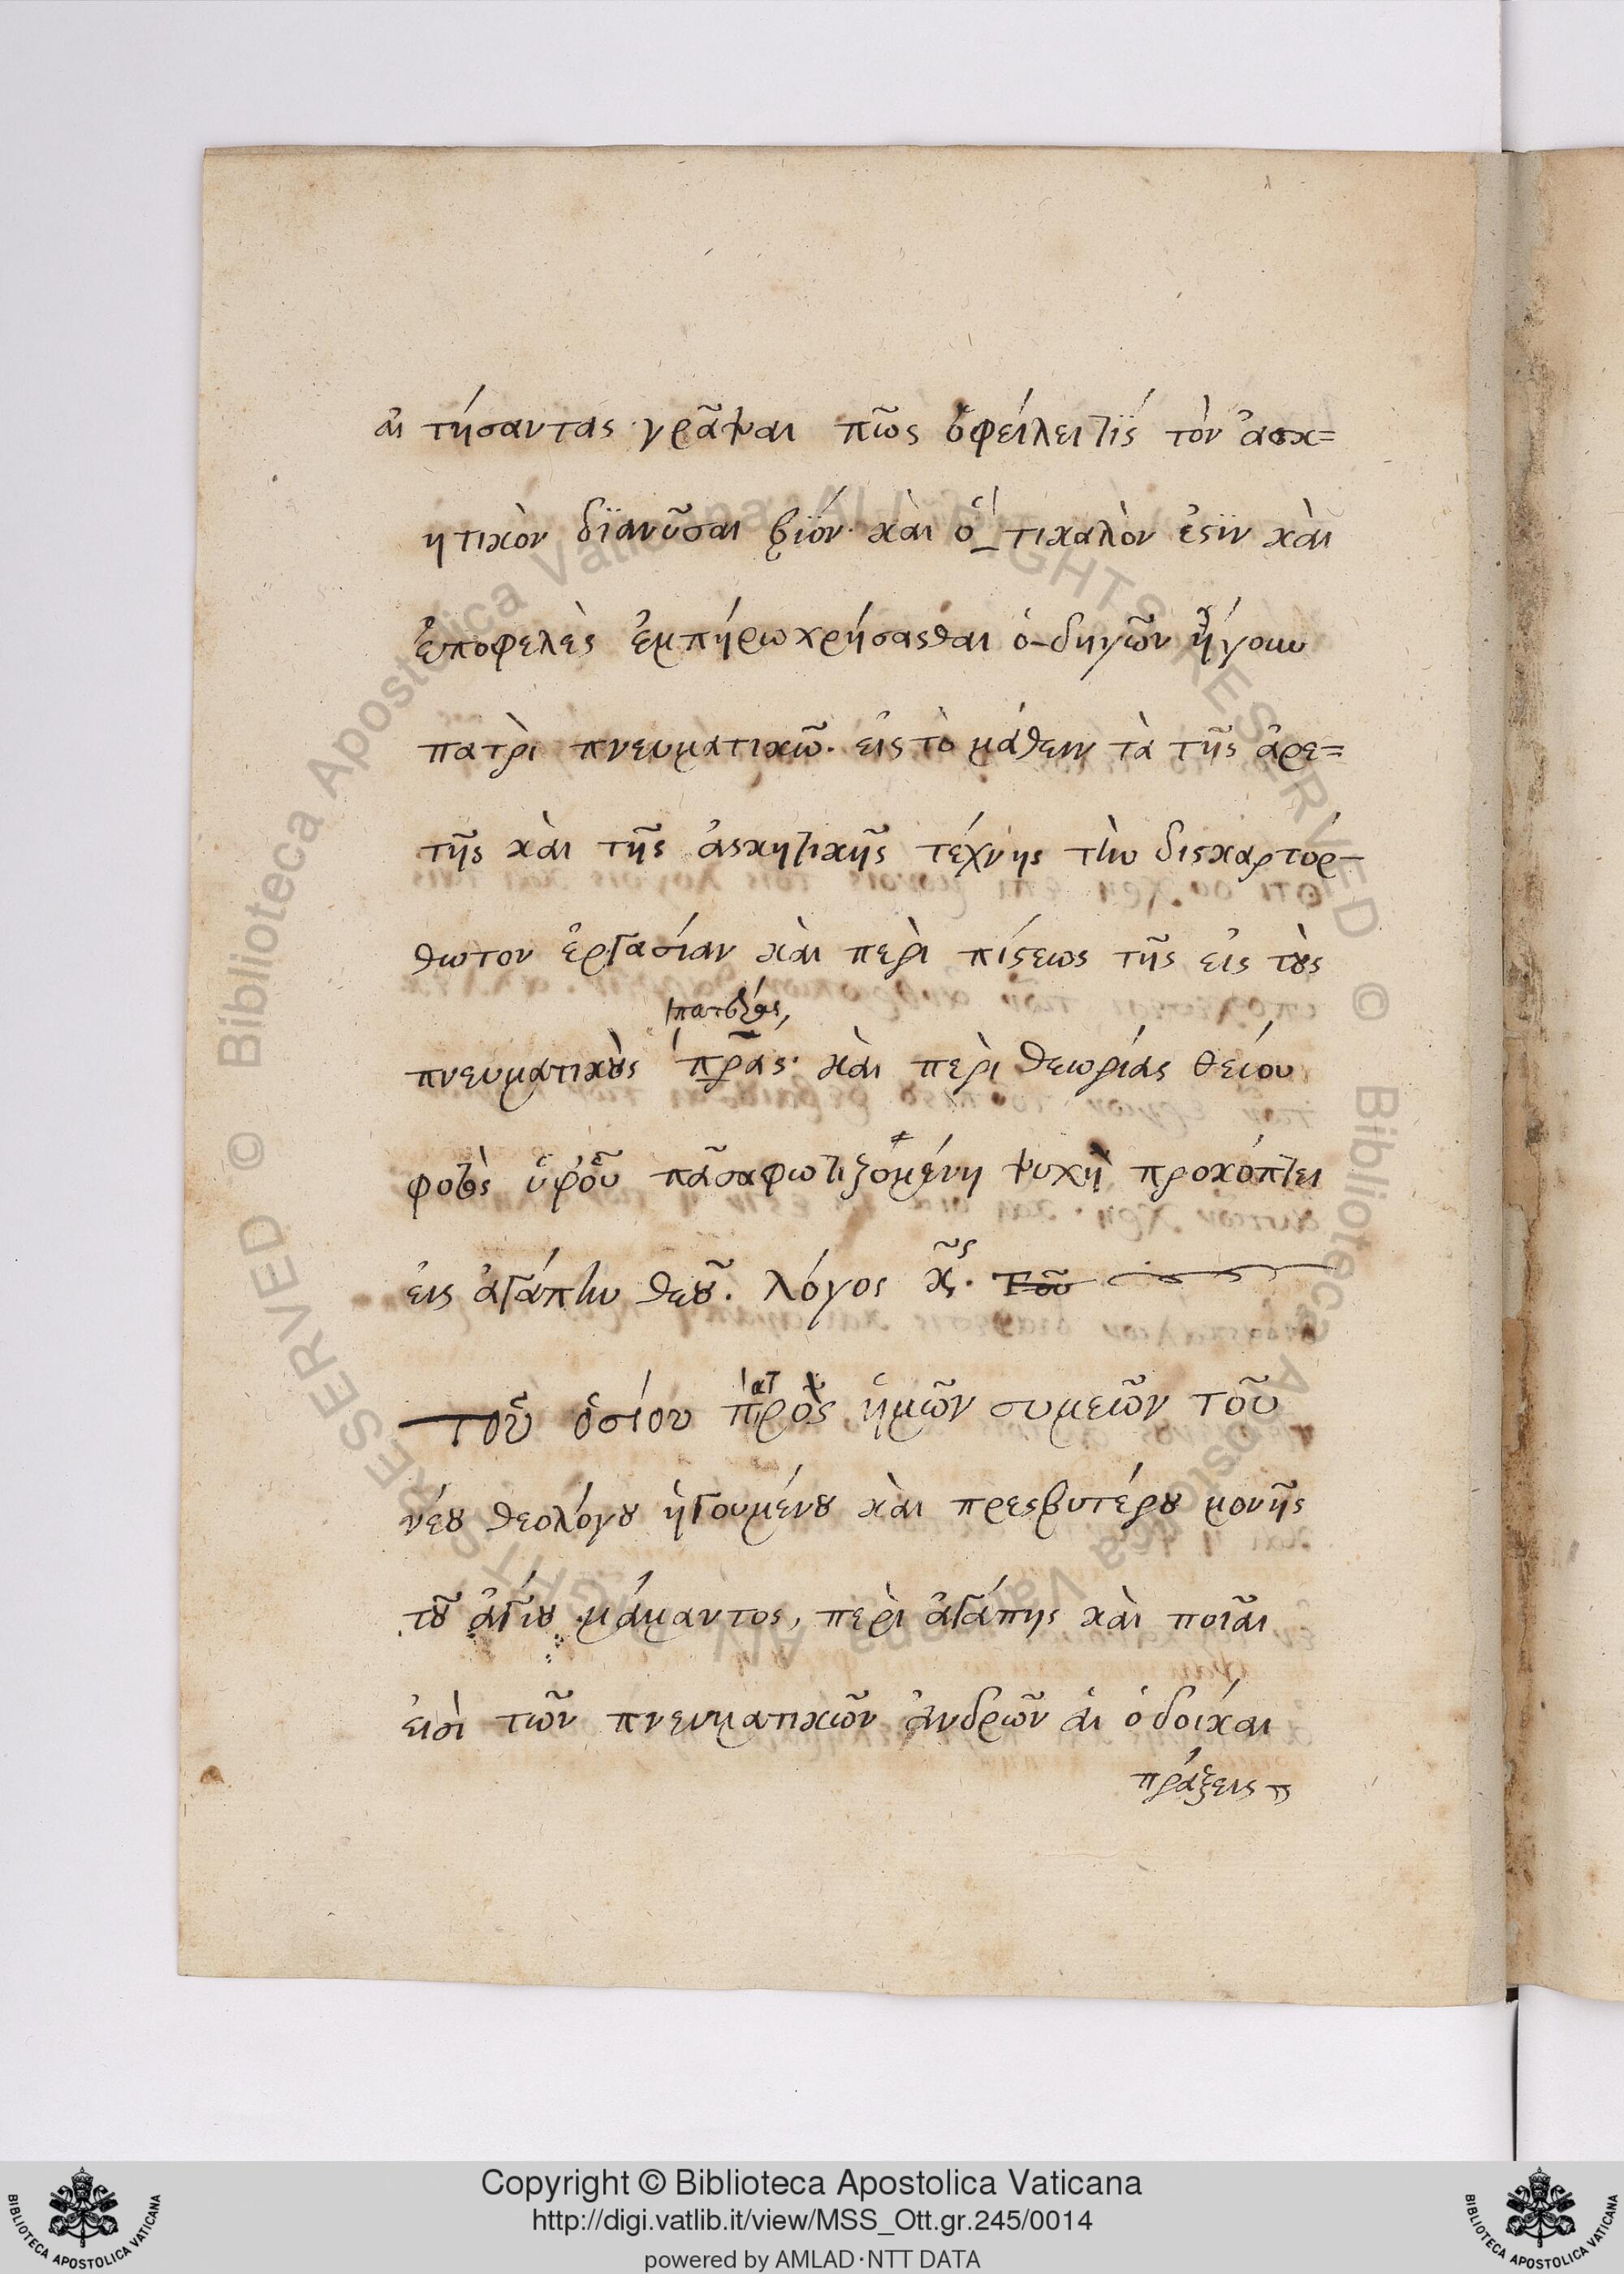 αἰ τήσαντας γρᾶψαι πῶς ὀφείλει τϊς τὸν ἀσκ=
ητικὸν δϊανῦσαι βϊόν· κὰι ὅ_τικαλὸν ἐςϊν κὰι
ἐποφελὲς ἐμπήρω χρήσασθαι ὁ-δηγῶν ἤγουν
πατρὶ πνευματικῶ. εἰς τὸ μάθειν τὰ τῆς ἀρε=
τῆς κὰι τῆς ἀσκητικῆς τέχνης τὴν δισκαρτόρ-
θωτον ἐργασίαν κὰι περὶ πίςεως τῆς εἰς τȣ̀ς
πνευματικȣ̀ς πρ̅ας· κὰι περὶ θεωρίας θείου
φοτὸς ὑφ᾽οὗ πᾶσαφωτιζομένη ψυχὴ προκόπτει
εἰς ἀγάπην θεȣ͂. λόγος κ̃ς. Τοῦ
τοῦ ὁσίου πρὸς ἡμῶν συμεῶν τοῦ
νέȣ θεολόγȣ ἡγουμένȣ κὰι πρεσβυτέρȣ μονῆς
τȣ͂ ἁγίȣ μάμαντος, περὶ ἀγάπης κὰι ποῖαι
εἰσὶ τῶν πνευματικῶν ἀνδρῶν ἁι ὁδοίκαι
πράξεις
Copyright © Biblioteca Apostolica Vaticana
http://digi.vatlib.it/view/MSS_Ott.gr.245/0014
powered by AMLAD·NTT DATA
BIBLIOTECA APOSTOLICA VATICANA
BIBLIOTECA APOSTOLICA VATICANA